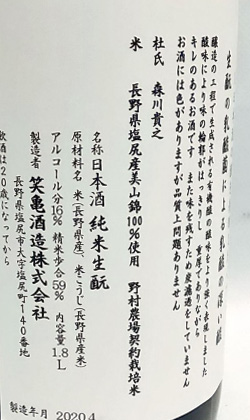 生酛の乳酸菌による乳酸の深い味
醸造の工程で生成される有機酸の酸味をより強く表現しました
酸味により味の輪郭がはっきりし、重厚でありながら
キレのあるお酒です また味を残すため炭濾過をしていません
お酒には色がありますが品質上問題ありません
杜氏 森川貴之
米 長野県塩尻産美山錦100%使用 野村農場契約栽培米
名称 日本酒 純米生酛
原材料名 米(長野県産)、米こうじ(長野県産米)
アルコール分16% 精米歩合59% 内容量1.8L
製造者 笑亀酒造株式会社
長野県塩尻市大字塩尻町140番地
飲酒は20歳になってから
製造年月 2020.4